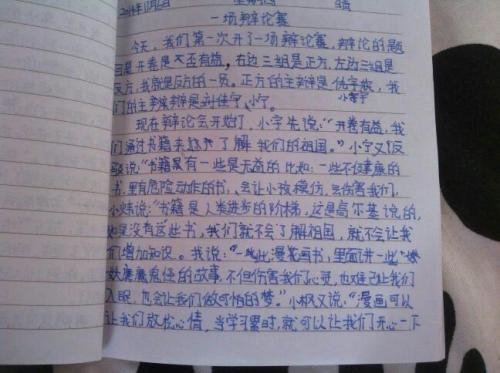 一场辩论赛
今天，我们第一次开了一场辩论赛，辩论的题
目是开卷是不是有益，右边三组是正方，左边三组是
反方，我就是反方的一员。正方的主辩是
们的主辩是刘佳宁、小宁。
现在辩论会开始了，小宇先说：“开卷有益，我
们通过书籍来了解我们的祖国。”小宁又反
驳说：“书籍里有一些是无益的比如：一些不健康的
书，里有危险动作的书，会让小孩模仿，会伤害我们。
说：“书籍是人类进步的阶梯，这是高尔基说的，
如果没有这些书，我们就不会了解祖国，就不会让我
们增加知识。我说：“一些漫画书，里面讲一些
妖魔鬼怪的故事，不但伤害我们心灵，也难已让我们
入眠，也会让我们做可怕的梦。”小枫又说：“漫画可以
让我们放松心情，当学习累时，就可以让我们开心一下